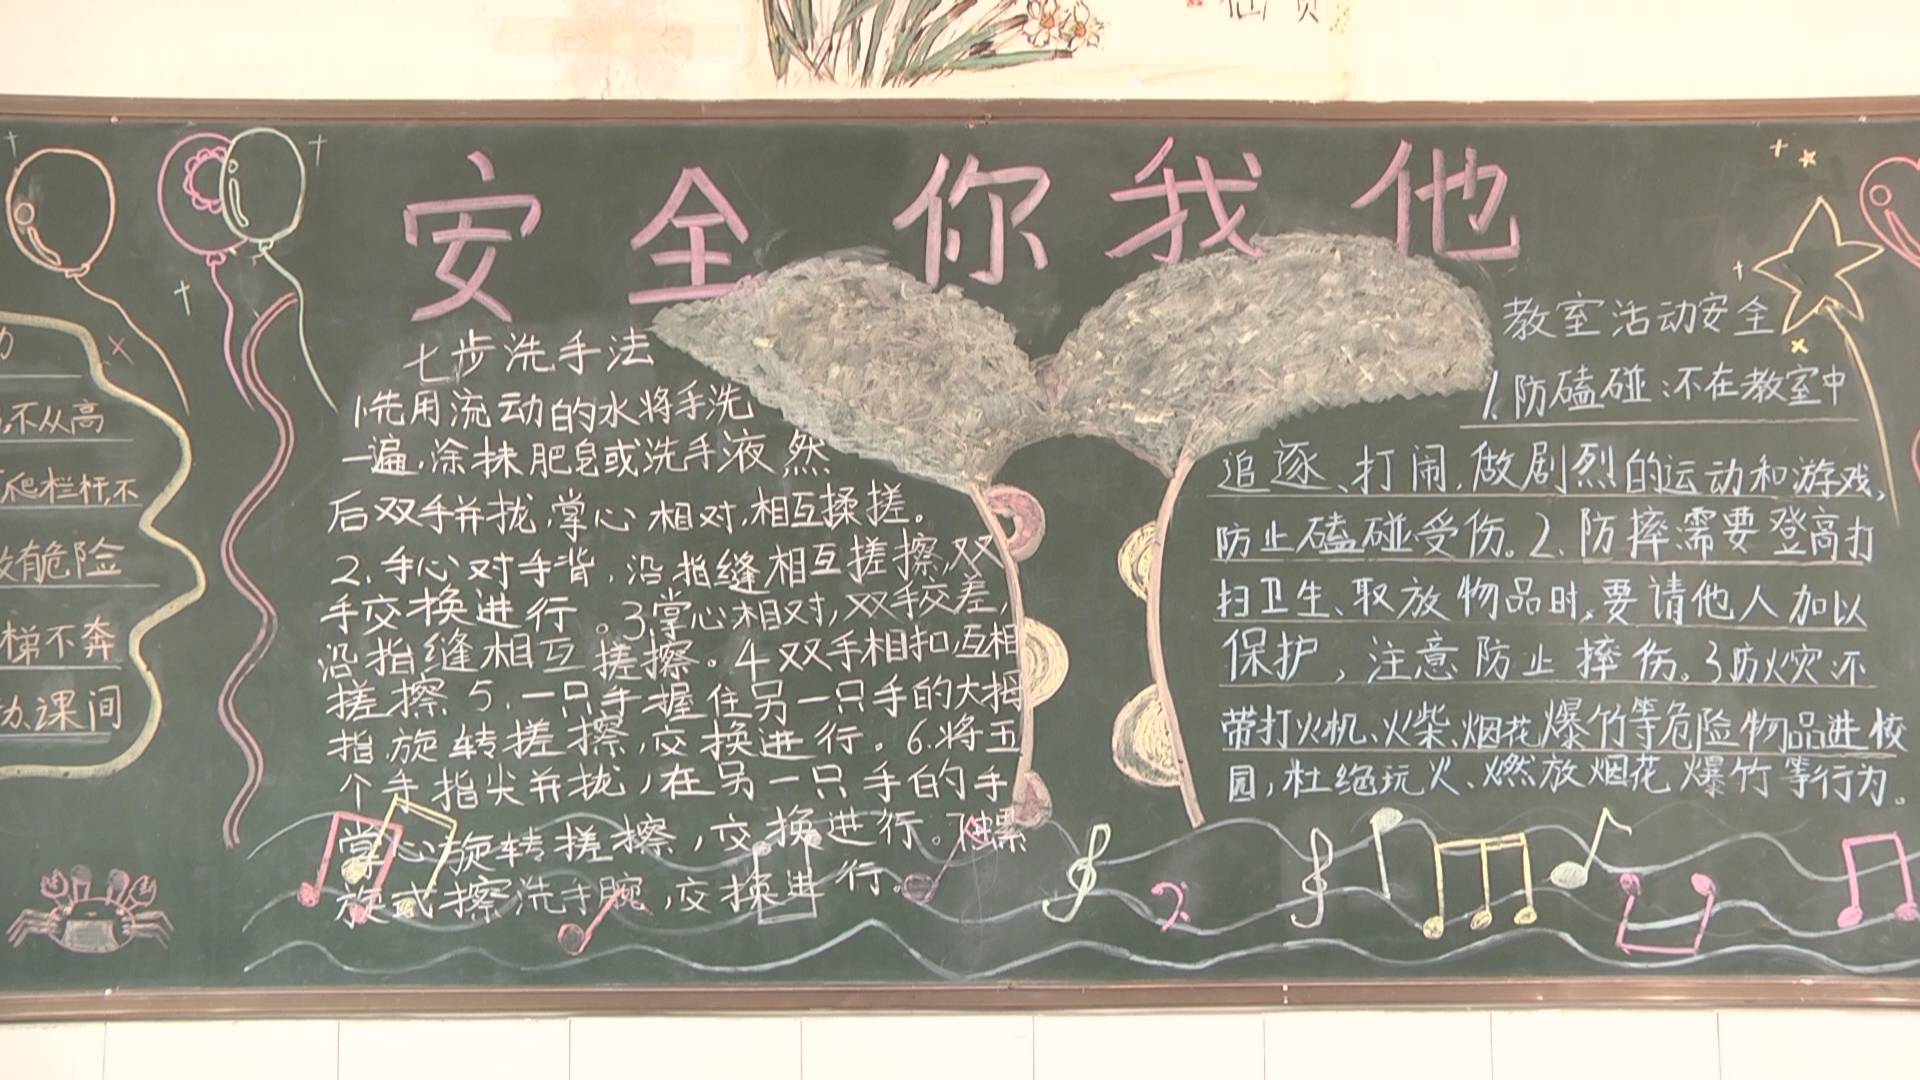 安全你我他
不从高
爬栏杆,不
有危险
梯不奔
课间
七步洗手法
1.先用流动的水将手洗
一遍,涂抹肥皂或洗手液 然
后双手并拢,掌心相对,相互揉搓。
2.手心对手背,沿指缝相互搓擦,双
手交换进行。3掌心相对,双手交差,
沿指缝相互搓擦。4双手相扣,互相
搓擦5.一只手握住另一只手的大拇
指旋转搓擦,交换进行。6.将五
个手指尖并拢,在另一只手的手
掌心旋转搓擦,交换进行。7.螺
旋式擦洗手腕,交换进行。
教室活动安全
1.防磕碰:不在教室中
追逐、打闹,做剧烈的运动和游戏,
防止磕碰受伤。2.防摔需要登高打
扫卫生、取放物品时,要请他人加以
保护,注意防止摔伤。3防火灾不
带打火机、火柴、烟花爆竹等危险物品进校
园,杜绝玩火、燃放烟花爆竹等行为。